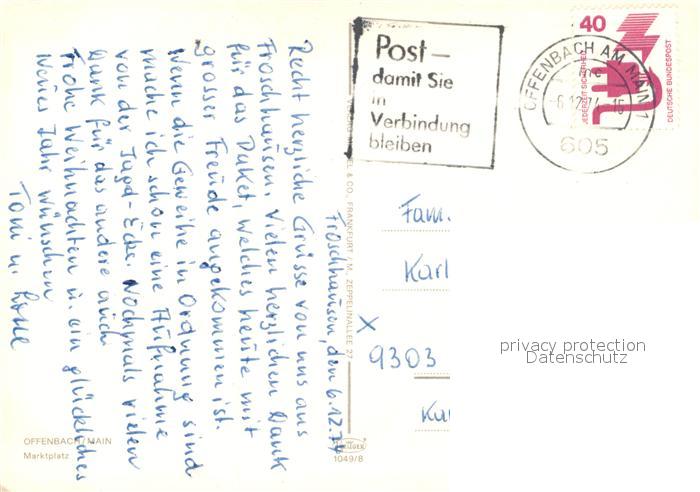 Froschhausen, den 6.12.74
Recht herzliche Grüsse von uns aus
Froschhausen. Vielen herzlichen Dank
für das Paket, welches heute mit
grosser Freude angekommen ist.
Wenn die Geweihe in Ordnung sind
mache ich schon eine Aufnahme
von der Jagd-Ecke. Nochmals vielen
Dank für das andere auch
Frohe Weihnachten u. ein glückliches
neues Jahr wünschen
Toni u.
OFFENBACH/MAIN
Marktplatz
& CO. FRANKFURT / M. ZEPPELINALLEE 27
KRÜGER
1049/8
Post –
damit Sie
in
Verbindung
bleiben
OFFENBACH AM MAIN 1
-6.12.74-15
605
40
JEDERZEIT SICHERHEIT
DEUTSCHE BUNDESPOST
Fam.
Karl
X
9303
privacy protection
Datenschutz